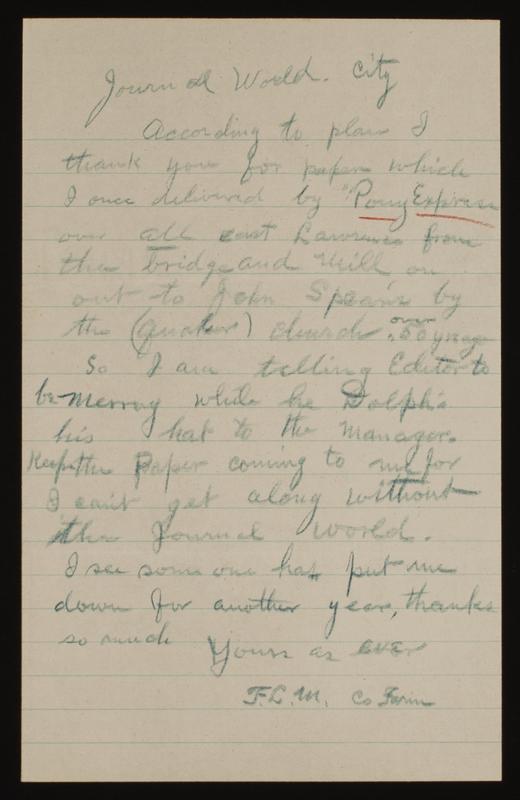 Journal World. City
According to plan I
thank you for paper which
I once delivered by "Pony Express
over all east Lawrence from
the bridge and Mill on
out to John Spears by
the (Quaker) church over 50 y
So I am telling Editor to
be Merry while he Dolphs
his hat to the Manager.
Keep the Paper coming to me for
I can't get along without
the Journal World.
I see some one has put me
down for another year, thanks
so much
Yours as ever
F.L.M. Co Farm